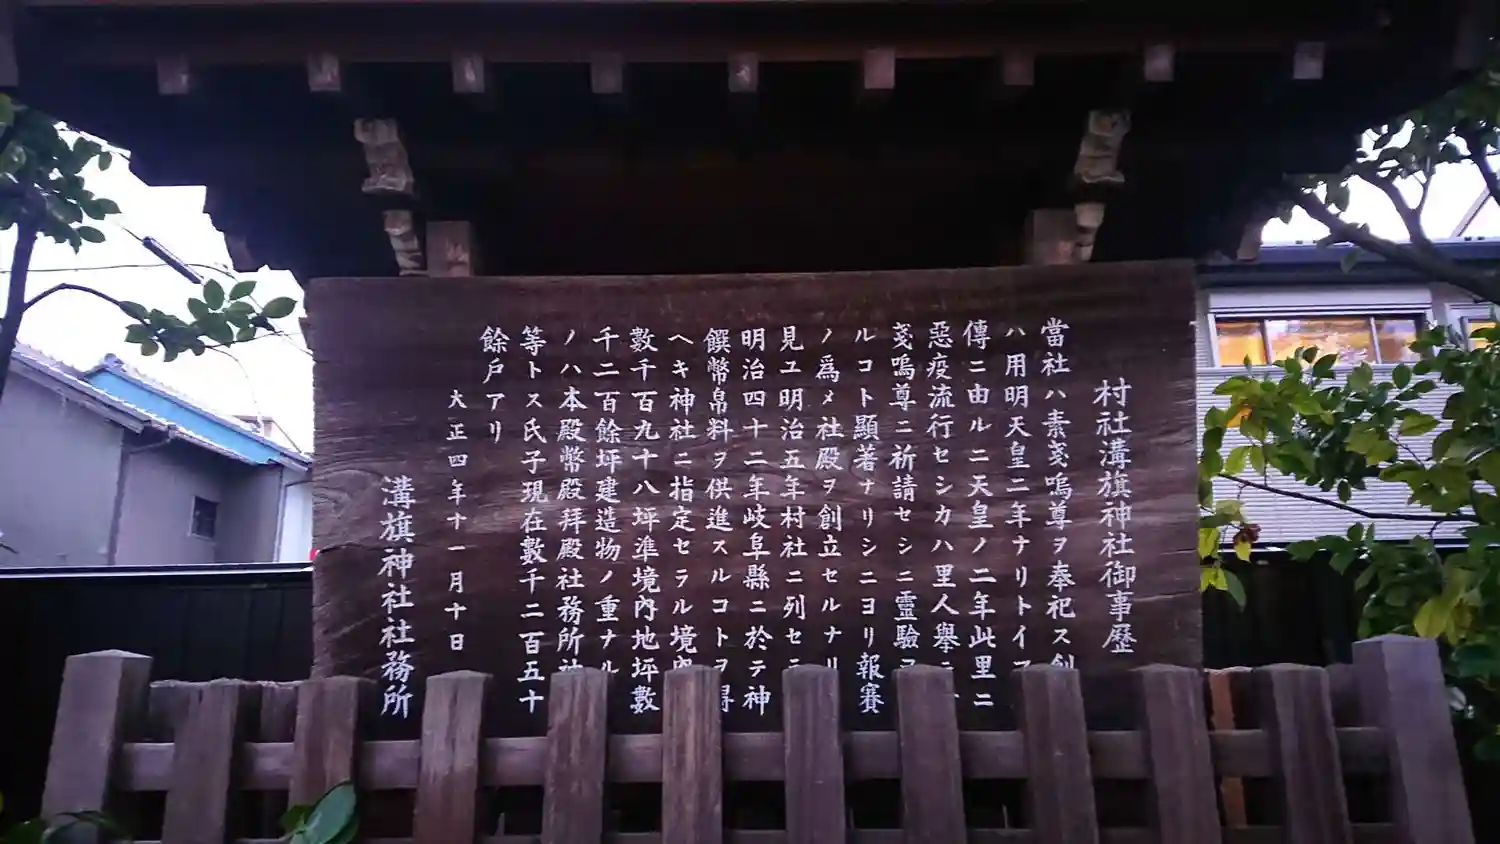 村社溝旗神社御事歴
當社ハ素戔嗚尊ヲ奉祀ス創
ハ用明天皇二年ナリトイフ
傳ニ由ルニ天皇ノ二年此里ニ
惡疫流行セシカハ里人擧
戔嗚尊ニ祈請セシニ靈驗
ルコト顯著ナリシニヨリ報賽
ノ爲メ社殿ヲ創立セルナリ
見ユ明治五年村社ニ列セ
明治四十二年岐阜縣ニ於テ神
饌幣帛料ヲ供進スルコトヲ得
ヘキ神社ニ指定セラル境內
數千百九十八坪準境內地坪數
千二百餘坪建造物ノ重ナル
ノハ本殿幣殿拜殿社務所
等トス氏子現在數千二百五十
餘戸アリ
大正四年十一月十日
溝旗神社社務所